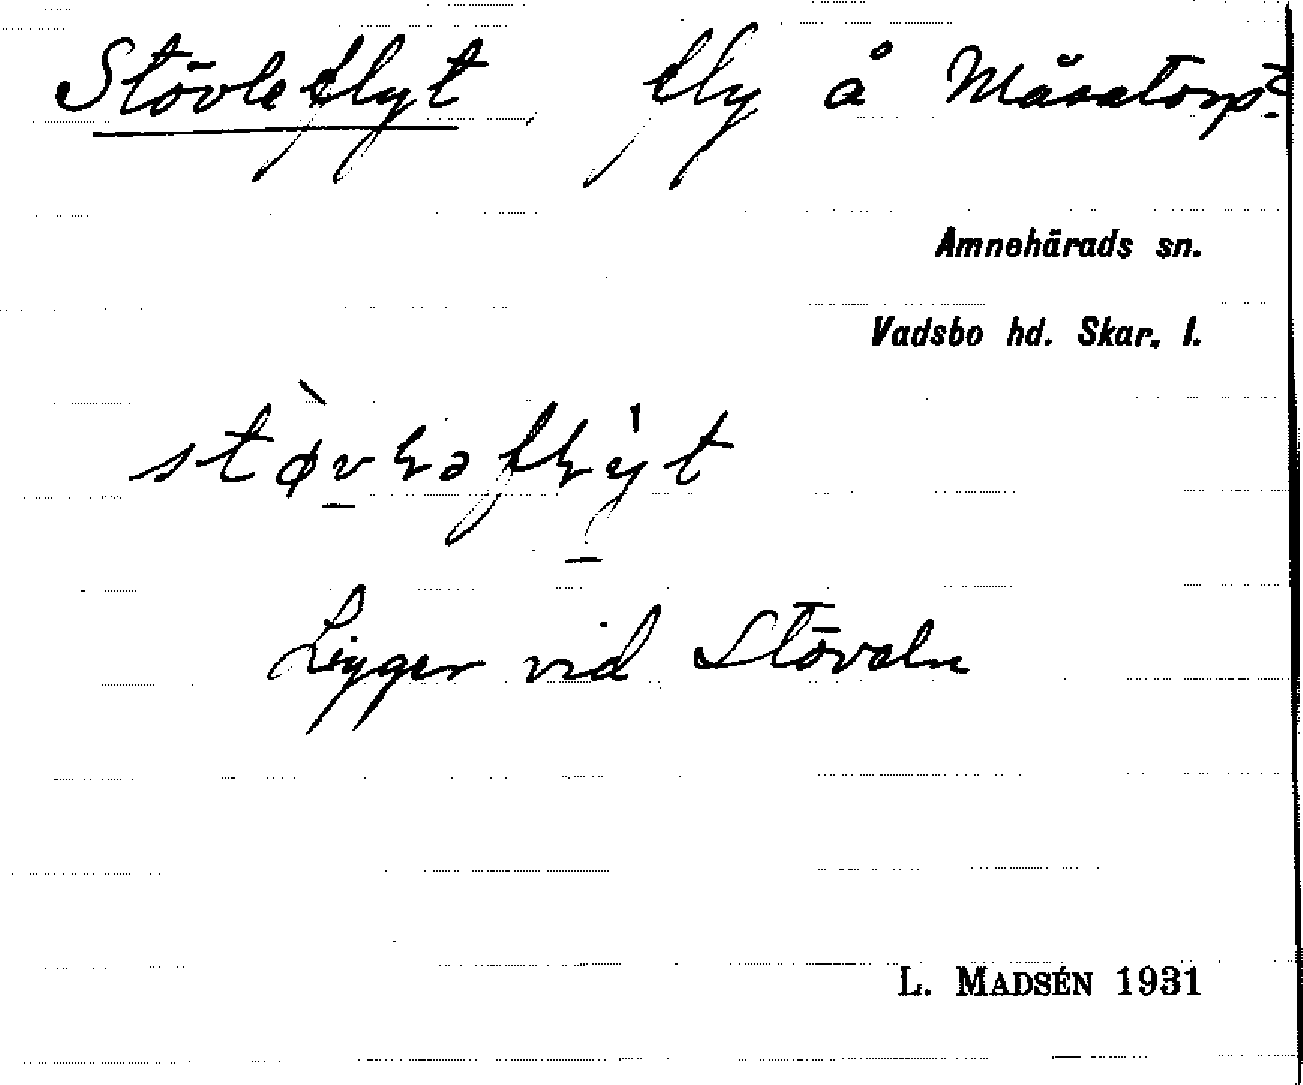 Stövleflyt fly å Måsatorp
Amnehärads sn.
Vadsbo hd. Skar. l.
Ligger vid Stöveln
L. MADSÉN 1931